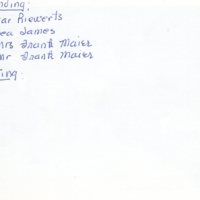 nding:
ar Riewerts
ea James
Mrs Frank Maier
Mr Frank Maier
ing: